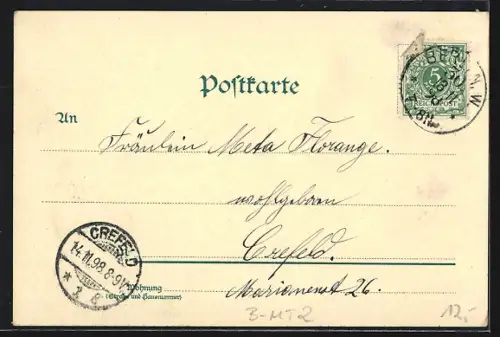 Postkarte
BERLIN N.W.
5
REICHSPOST
An
Fräulein Meta Florange.
wohlgeboren
Crefeld.
CREFELD
14.11.98.8-9V.
* 3 e *
Wohnung
(Straße und Hausnummer)
Marianenst 26.
3-MT2
12,-